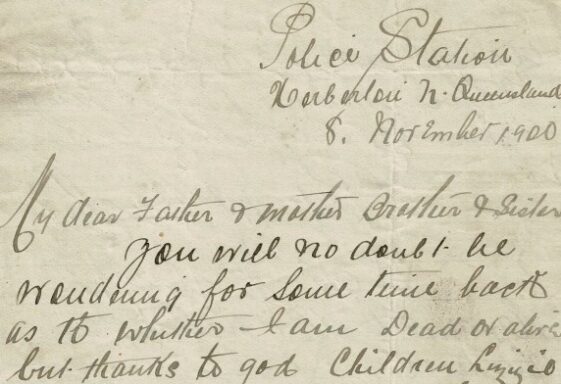 Police Station
Herberton N. Queensland
8. November 1900
My dear Father & Mother Brother & Sister
you will no doubt be
wondering for some time back
as to whither I am Dead or alive
but thanks to god Children Lizzie